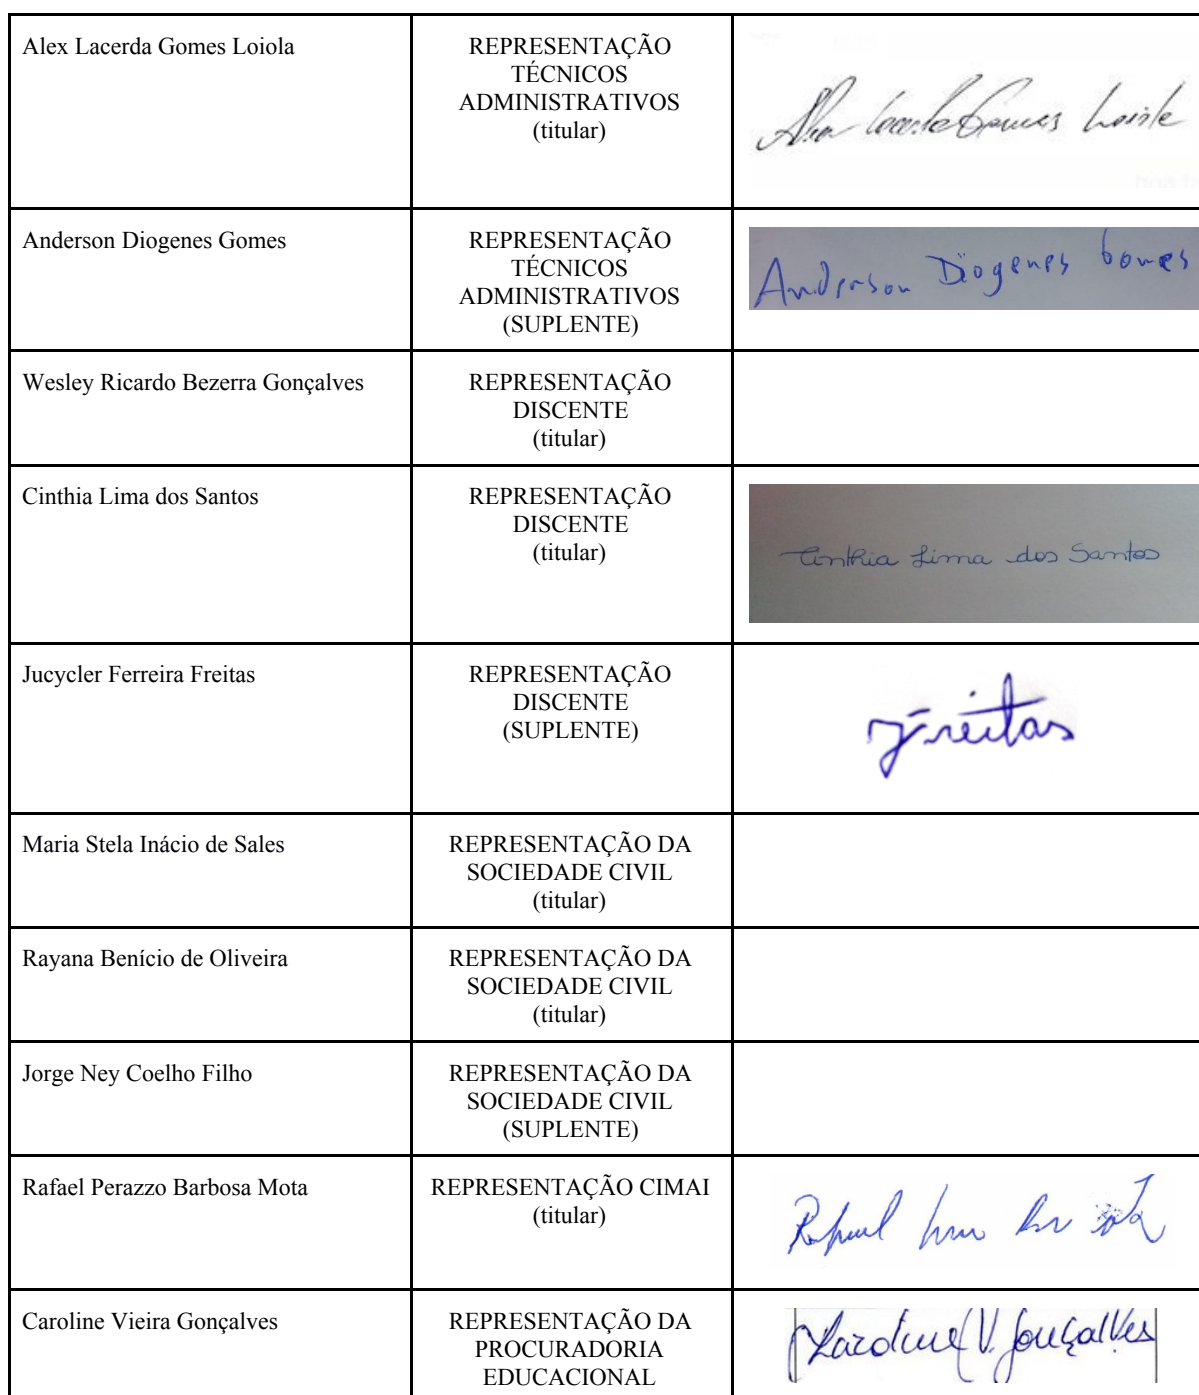 Alex Lacerda Gomes Loiola
REPRESENTAÇÃO
TÉCNICOS
ADMINISTRATIVOS
(titular)
Alex Lacerda Gomes Loiola
Anderson Diogenes Gomes
REPRESENTAÇÃO
TÉCNICOS
ADMINISTRATIVOS
(SUPLENTE)
Anderson Diogenes Gomes
Wesley Ricardo Bezerra Gonçalves
REPRESENTAÇÃO
DISCENTE
(titular)
Cinthia Lima dos Santos
REPRESENTAÇÃO
DISCENTE
(titular)
Cinthia Lima dos Santos
Jucycler Ferreira Freitas
REPRESENTAÇÃO
DISCENTE
(SUPLENTE)
JFreitas
Maria Stela Inácio de Sales
REPRESENTAÇÃO DA
SOCIEDADE CIVIL
(titular)
Rayana Benício de Oliveira
REPRESENTAÇÃO DA
SOCIEDADE CIVIL
(titular)
Jorge Ney Coelho Filho
REPRESENTAÇÃO DA
SOCIEDADE CIVIL
(SUPLENTE)
Rafael Perazzo Barbosa Mota
REPRESENTAÇÃO CIMAI
(titular)
Rafael
Caroline Vieira Gonçalves
REPRESENTAÇÃO DA
PROCURADORIA
EDUCACIONAL
Caroline V. Gonçalves